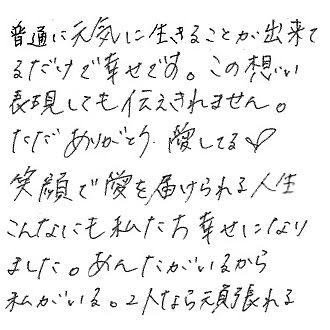 普通に元気に生きることが出来て
るだけで幸せです。この想い
表現しても伝えきれません。
ただありがとう 愛してる♡
笑顔で愛を届けられる人生
こんなにも私たち幸せになり
ました。あんたがいるから
私がいる。2人なら頑張れる